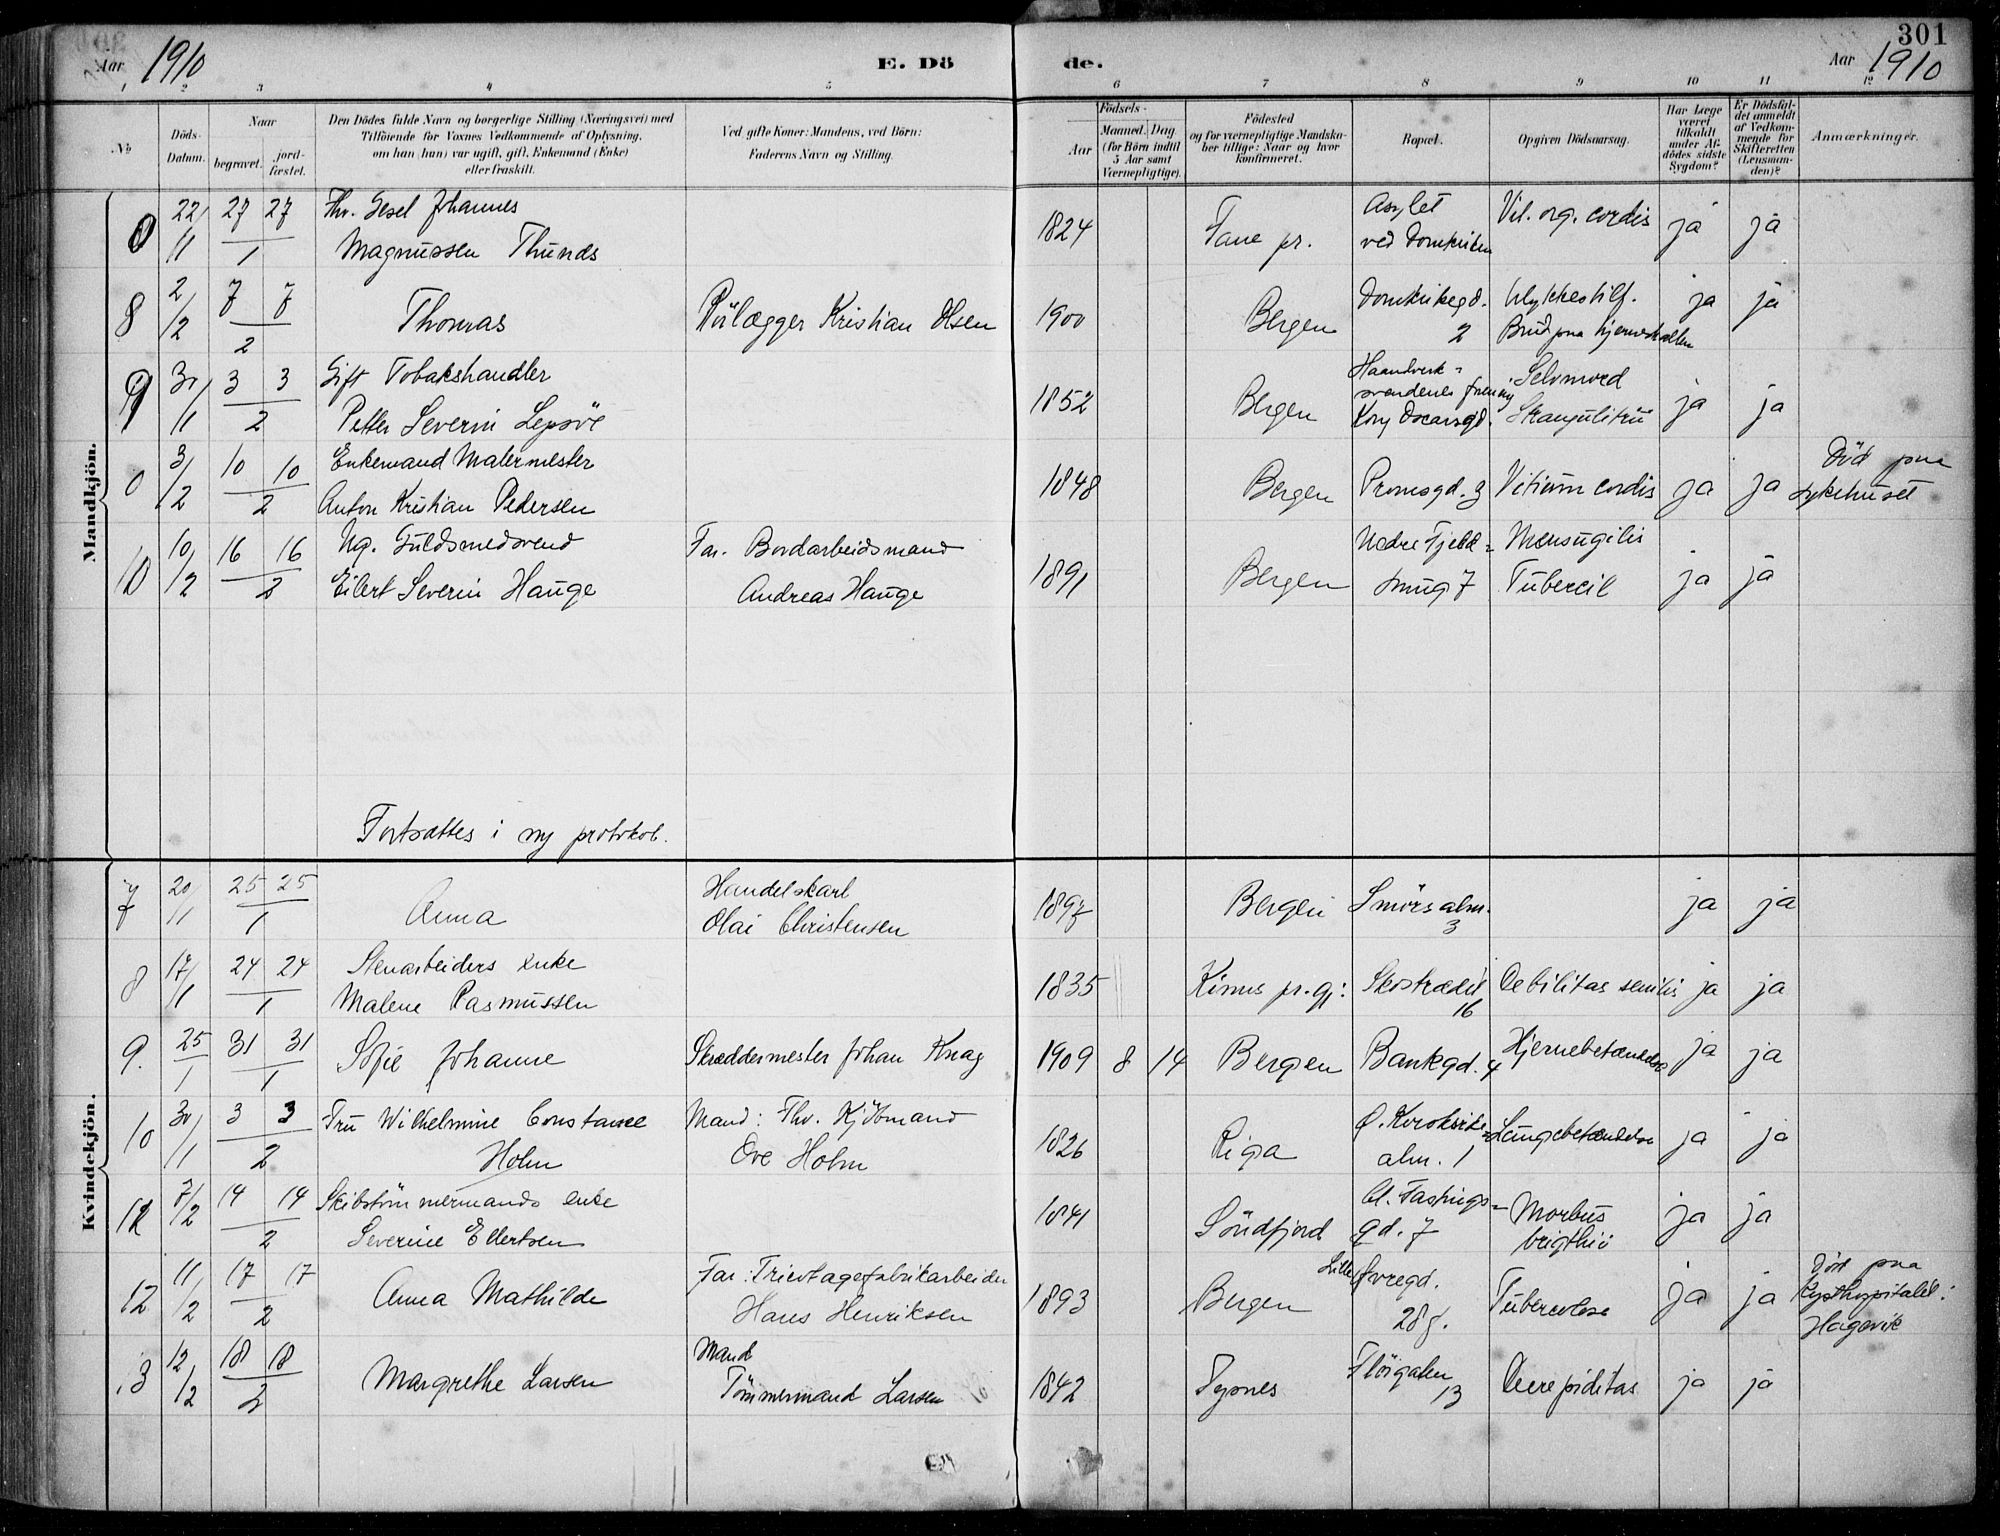 301
Aar 1910
E. Dö
de.
Aar 1910
1 2 3 4 5 6 7 8 9 10 11 12
No
Döds-Datum.
Naar
begravet.
jord-fæstet.
Den Dödes fulde Navn og borgerlige Stilling (Næringsvei) med
Tilföiende for Voxnes Vedkommende af Oplysning,
om han (hun) var ugift, gift, Enkemand (Enke)
eller fraskilt.
Ved gifte Koner: Mandens, ved Börn:
Faderens Navn og Stilling.
Födsels-
Aar
Maaned. Dag
(for Börn indtil
5 Aar samt
Værnepligtige).
Födested
og for værnepligtige Mandska-
ber tillige: Naar og hvor
konfirmeret.
Bopæl.
Opgiven Dödsaarsag.
Har Læge
været
tilkaldt
under Af-
dödes sidste
Sygdom?
Er Dödsfal-
det anmeldt
af Vedkom-
mende for
Skifteretten
(Lensman-
den)?
Anmærkninger.
Mandkjön.
22/11 27 27 1 Fhv. Gesel Johannes
Magnussen Thunes
1824 Fane pr. Asylet
ved Domkirken Vit. org. cordis ja ja
8 2/2 7 7 2 Thomas Rørlægger Kristian Olsen 1900 Bergen Domkirkegd.
2 Ulykkestilf.
Brud paa hjerneskallen ja ja
9 30/11 3 3 2 Gift Tobakshandler
Petter Severin Lepsöe
1852 Bergen Haandverk-
svendenes forening
Kong Oscarsgd. Selvmord
ja ja
0 3/2 10 10 2 Enkemand Malermester
Anton Kristian Pedersen
1848 Bergen Promsgd. 3 Vitium cordis ja ja Död paa
sykehuset
10 10/2 16 16 2 Ug. Guldsmedsvend
Eilert Severin Hauge
Far. Bordarbeidsmand
Andreas Hauge
1891 Bergen Nedre Fjeld-
smug 7
Tubercil ja ja
Fortsættes i ny protokol.
Kvindekjön.
7 20/11 25 25 1 Anna Handelskarl
Olai Christensen
1897 Bergen Smörsalm.
3 ja ja
8 17/1 24 24 1 Stenarbeiders enke
Malene Rasmussen
1835 Kinns pr.gj: Skostrædet
16 Debilitas senilis ja ja
9. 25/1 31 31 1 Sofie Johanne Skræddermester Johan Knag 1909 8 14 Bergen Bankgd. 4 Hjernebetændelse ja ja
10 30/11 3 3 2 Fru Wilhelmine Constance
Holm
Mand: Fhv. Kjöbmand
Ove Holm
1826 Riga Ø. Korskirke-
alm. 1 Lungebetændelse ja ja
11 7/2 14 14 2 Skibstömmermands enke
Severine Ellertsen
1841 Söndfjord Cl. Fastings-
gd. 7 Morbus
brigthii ja ja
12 11/2 17 17 2 Anna Mathilde Far: Tricotagefabrikarbeider
Hans Henriksen
1893 Bergen Lille Øvregd.
28 g. Tuberculose ja ja Död paa
Kysthospitalet i
Hagevik
13 12/2 18 18 2 Margrethe Larsen Mand
Tömmermand Larsen
1842 Tysnes Flöigaten
13 Decrepiditas ja ja